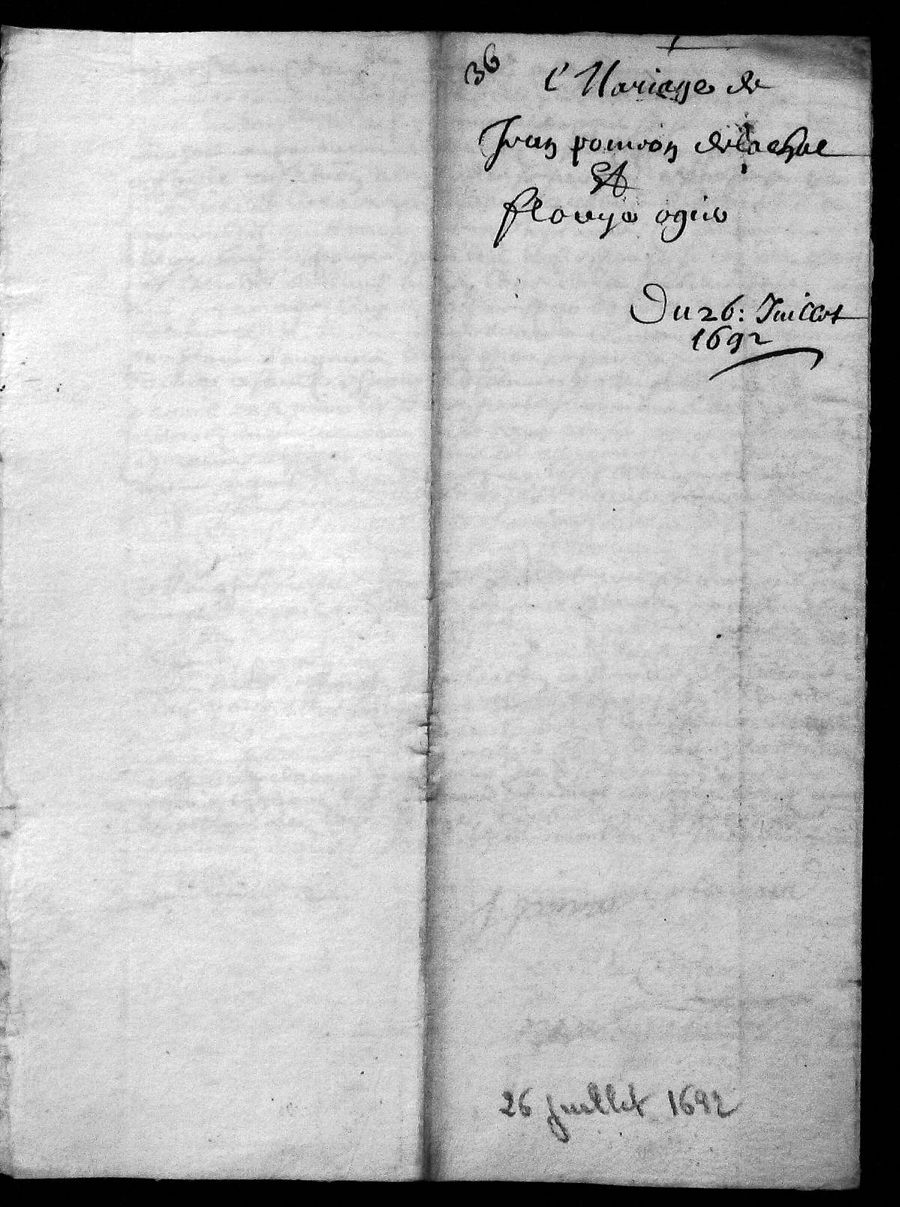 36
C Mariage de
Jean poudron delachae
Et
flouye ogier
Du 26: Juillet
1692
26 juillet 1692